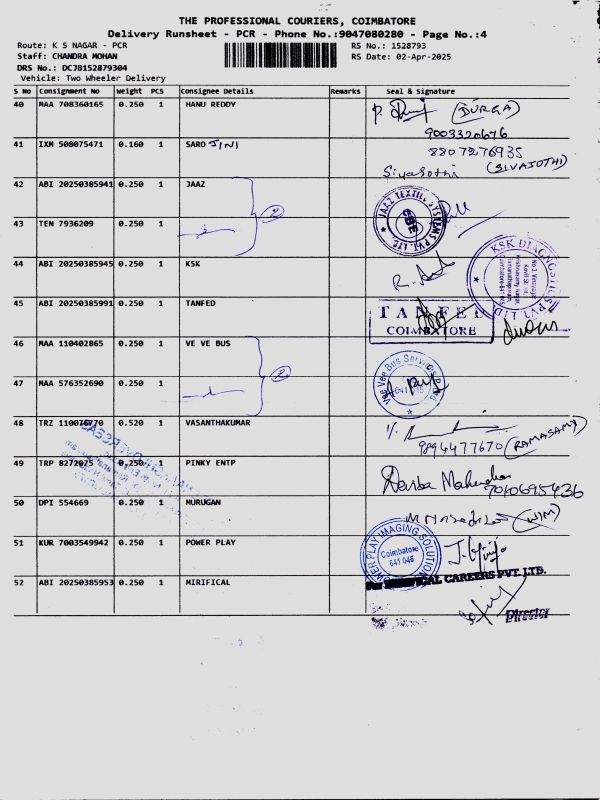 THE PROFESSIONAL COURIERS, COIMBATORE
Delivery Runsheet - PCR - Phone No.:9047080280 - Page No.:4
Route: K S NAGAR - PCR
RS No.: 1528793
Staff: CHANDRA MOHAN
RS Date: 02-Apr-2025
DRS No.: DCJB152879304
Vehicle: Two Wheeler Delivery
S No Consignment No Weight PCS Consignee Details Remarks Seal & Signature
40 MAA 708360165 0.250 1 HANU REDDY
(DURGA)
9003320676
41 IXM 508075471 0.160 1 SARO JINI
8807276935
Sivasothi (SIVAJOTHI)
42 ABI 20250385941 0.250 1 JAAZ
JAAZ TEXTILE SYSTEMS PVT. LTD.
CBE
43 TEN 7936209 0.250 1
44 ABI 20250385945 0.250 1 KSK
KSK DIAGNOSTICS PVT LTD
45 ABI 20250385991 0.250 1 TANFED
TANFED
COIMBATORE
46 MAA 110402865 0.250 1 VE VE BUS
Vee Vee Bus Services
47 MAA 576352690 0.250 1
48 TRZ 110076770 0.520 1 VASANTHAKUMAR
9894477670 (RAMASAMY)
49 TRP 8272075 0.250 1 PINKY ENTP
7010695436
50 DPI 554669 0.250 1 MURUGAN
51 KUR 7003549942 0.250 1 POWER PLAY
POWER PLAY IMAGING SOLUTIONS
Coimbatore
641 045
52 ABI 20250385953 0.250 1 MIRIFICAL
CAREERS PVT. LTD.
Director